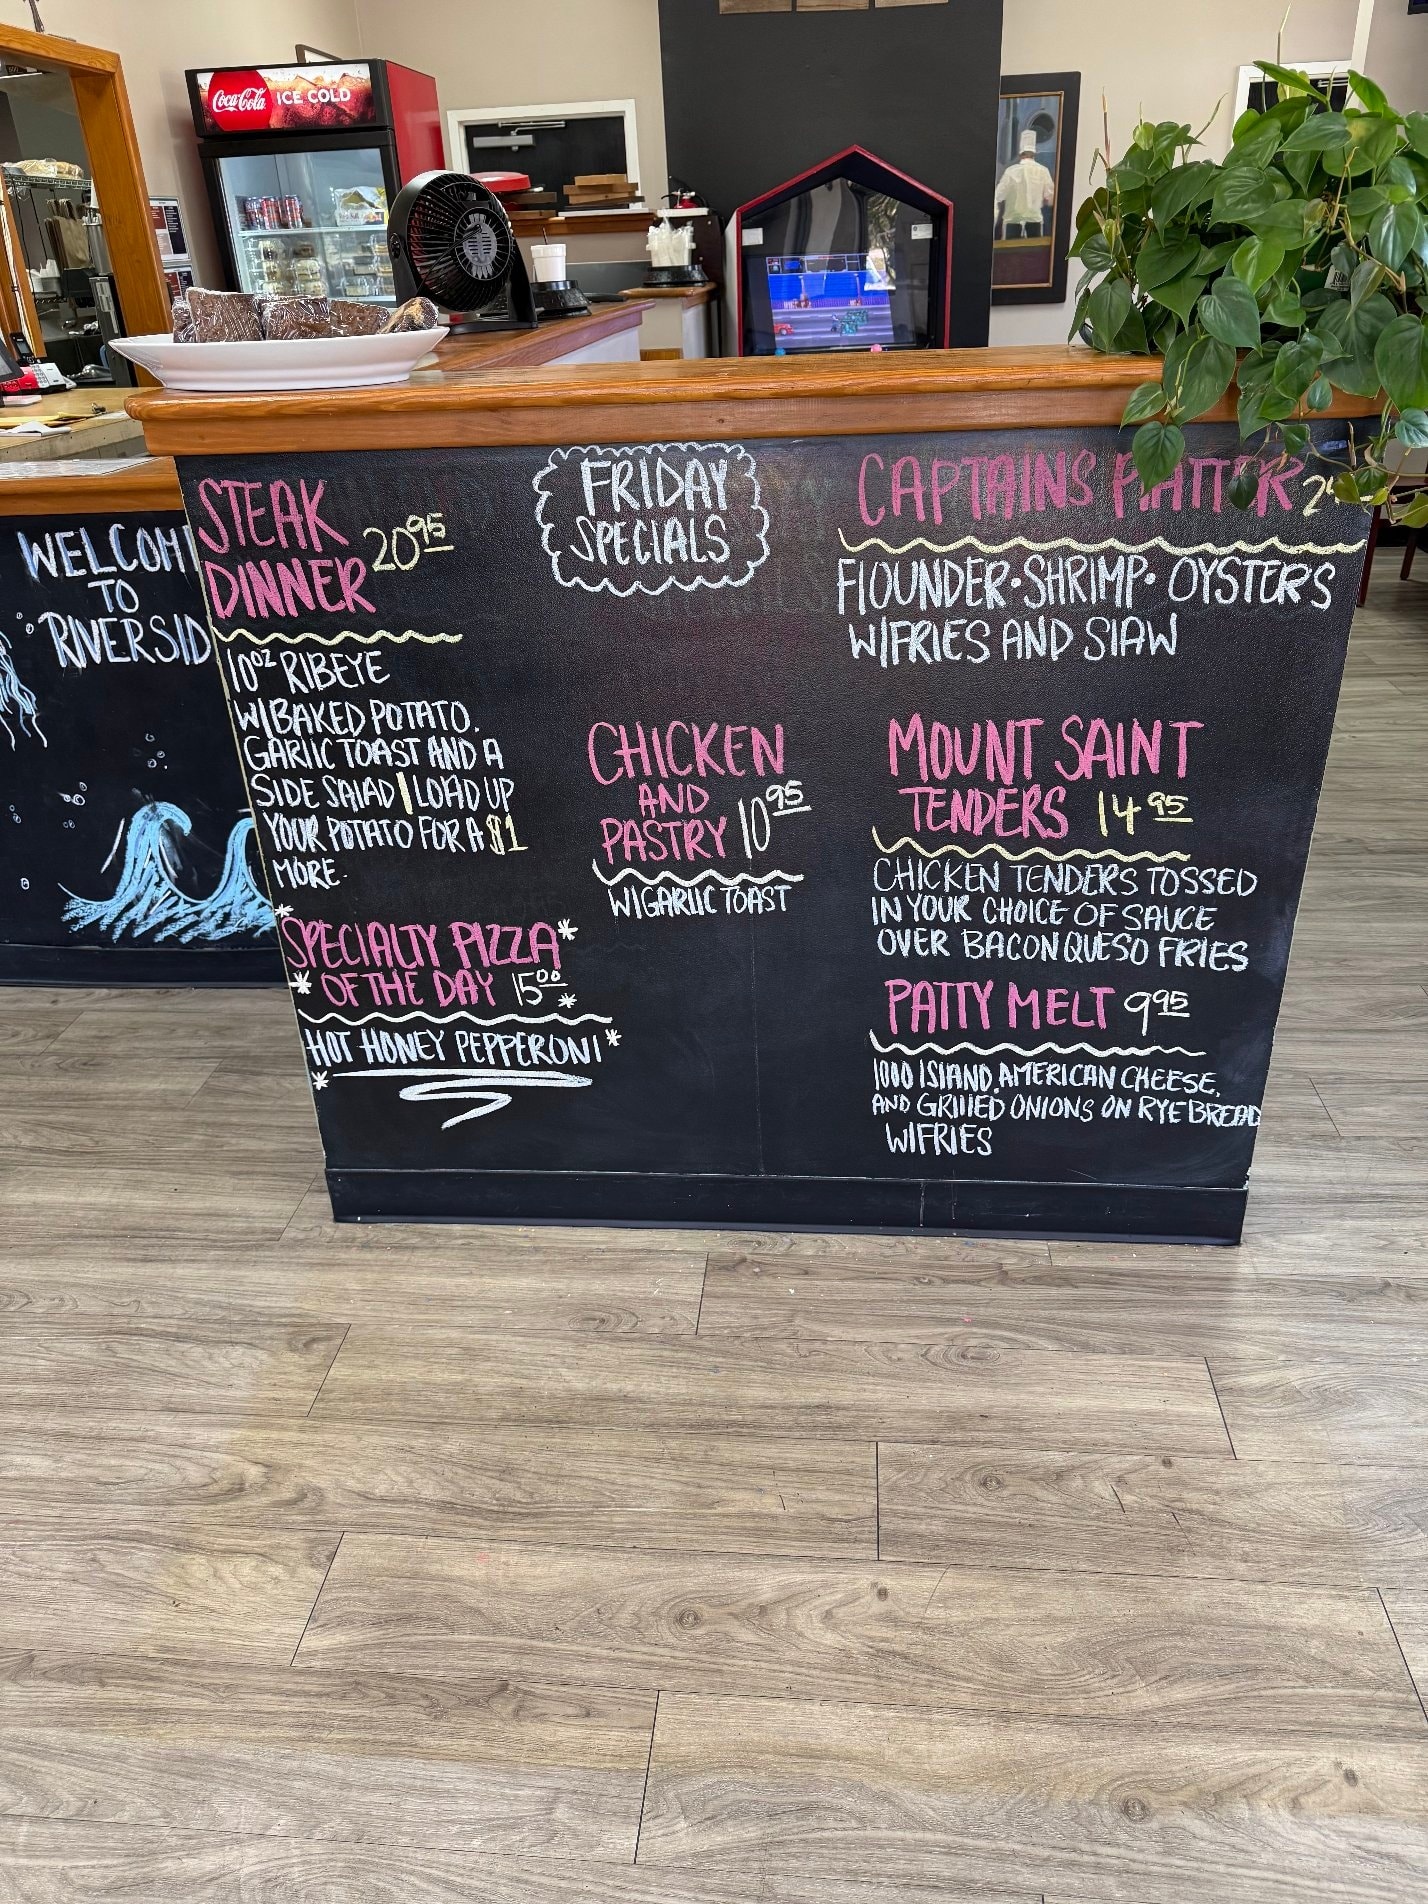 Coca-Cola ICE COLD
WELCOM
TO
RIVERSID
STEAK
DINNER 20.95
10oz RIBEYE
W/BAKED POTATO.
GARLIC TOAST AND A
SIDE SALAD | LOAD UP
YOUR POTATO FOR A $1
MORE.
*SPECIALTY PIZZA*
*OF THE DAY 15.00*
HOT HONEY PEPPERONI*
*
FRIDAY
SPECIALS
CHICKEN
AND
PASTRY 10.95
W/GARLIC TOAST
CAPTAINS PLATTER
FLOUNDER·SHRIMP·OYSTERS
W/FRIES AND SLAW
MOUNT SAINT
TENDERS 14.95
CHICKEN TENDERS TOSSED
IN YOUR CHOICE OF SAUCE
OVER BACON QUESO FRIES
PATTY MELT 9.95
1000 ISLAND, AMERICAN CHEESE,
AND GRILLED ONIONS ON RYE BREAD
W/FRIES